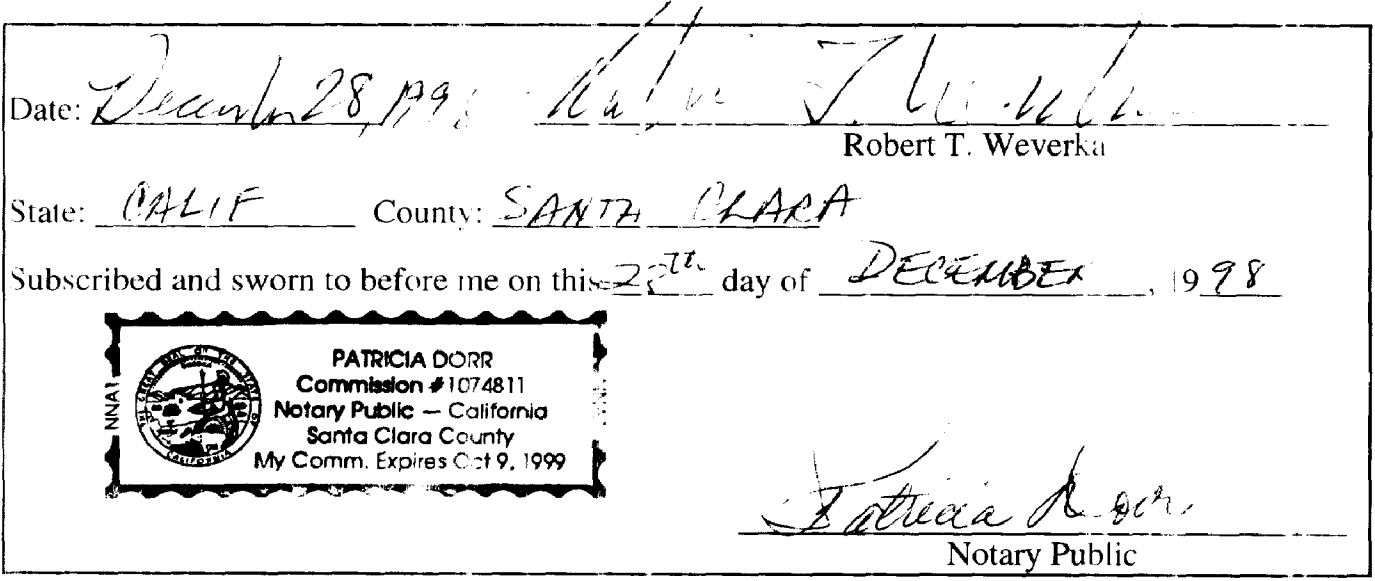 Date: December 28, 1998 Robert T. Weverka
Robert T. Weverka
State: CALIF County: SANTA CLARA
Subscribed and sworn to before me on this 28th day of DECEMBER, 1998
PATRICIA DORR
Commission #1074811
Notary Public — California
Santa Clara County
My Comm. Expires Oct 9, 1999
NNA1
THE GREAT SEAL OF THE STATE OF CALIFORNIA
Patricia Dorr
Notary Public